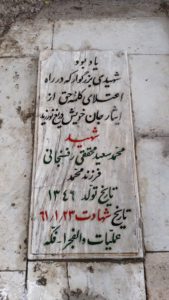 یاد بود
شهیدی بزرگوار که در راه
اعتلای کلمه حق از
ایثار جان خویش دریغ نورزید
شهید
محمد سعید محققی رفسنجانی
فرزند محمد
تاریخ تولد ۱۳۴۶
تاریخ شهادت ۶۱/۱/۲۳
عملیات والفجر۱ فکه